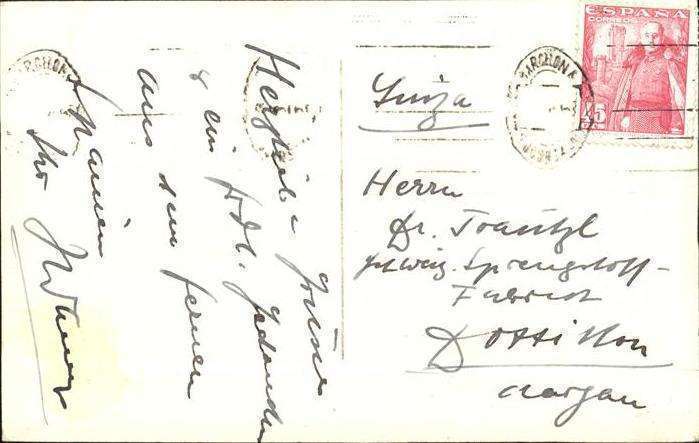 Herzliche Grüsse
& ein frdl. Gedenken
aus dem fernen
Spanien
Ihr
ESPAÑA
CORREOS
45
BARCELONA
Suiza
Herrn
Dr. Trautzl
Schweiz. Sprengstoff-
Fabrik
Dottikon
Aargau